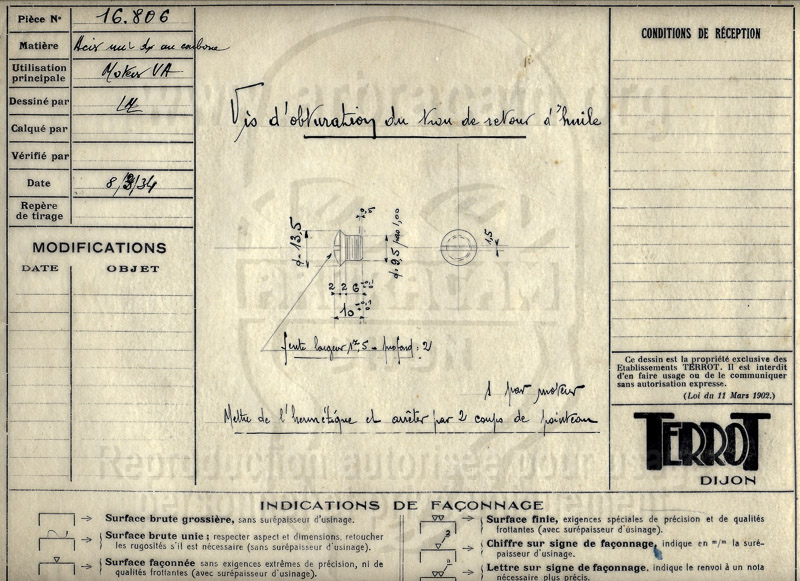 Pièce N° 16.806
Matière Acier mi-dx au carbone
Utilisation principale Moteur VA
Dessiné par
Calqué par
Vérifié par
Date 8/3/34
Repère de tirage
MODIFICATIONS
DATE OBJET
Vis d'obturation du trou de retour d'huile
d=13,5
d=9,5 pas 1,00
1,5
2 2 6
10
fente largeur 1,5 - profond: 2
1 par moteur
Mettre de l'hermétique et arrêter par 2 coups de pointeau
CONDITIONS DE RÉCEPTION
Ce dessin est la propriété exclusive des
Etablissements TERROT. Il est interdit
d'en faire usage ou de le communiquer
sans autorisation expresse.
(Loi du 11 Mars 1902.)
TERROT
DIJON
INDICATIONS DE FAÇONNAGE
Surface brute grossière, sans surépaisseur d'usinage.
Surface brute unie ; respecter aspect et dimensions, retoucher
les rugosités s'il est nécessaire (sans surépaisseur d'usinage).
Surface façonnée sans exigences extrêmes de précision, ni de
qualités frottantes (avec surépaisseur d'usinage).
Surface finie, exigences spéciales de précision et de qualités
frottantes (avec surépaisseur d'usinage).
Chiffre sur signe de façonnage, indique en m/m la suré-
paisseur d'usinage.
Lettre sur signe de façonnage, indique le renvoi à un nota
nécessaire plus précis.